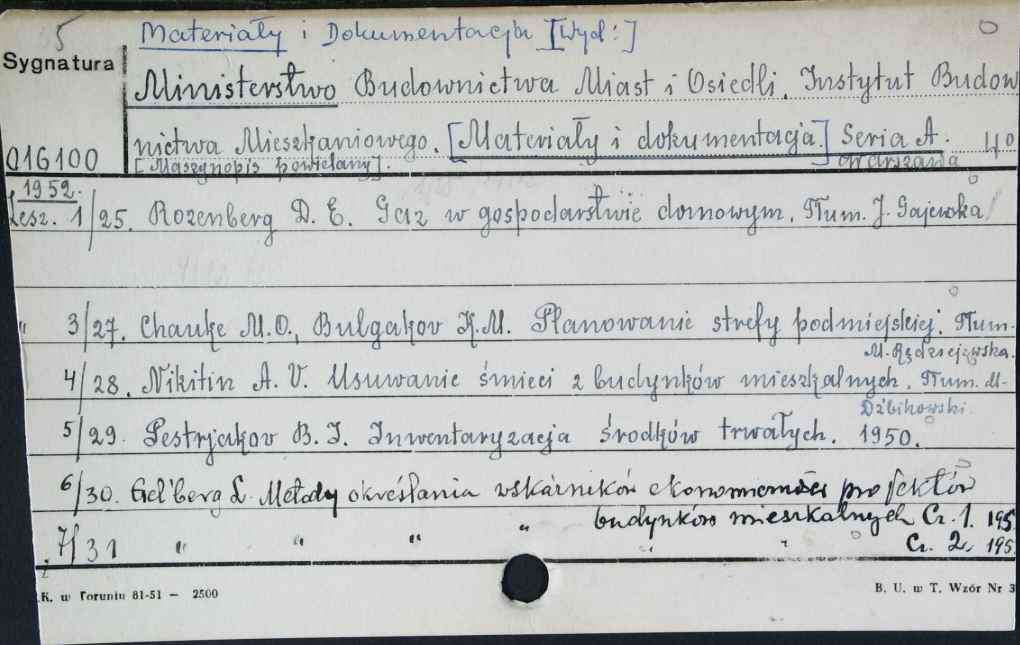 5 Materiały i Dokumentacja [Wyd:]
Sygnatura
Ministerstwo Budownictwa Miast i Osiedli. Instytut Budow
nictwa Mieszkaniowego. [Materiały i dokumentacja.] Seria A. 40
016100 [Maszynopis powielany]. Warszawa
1952.
Zesz. 1/25. Rozenberg D. E. Gaz w gospodarstwie domowym. Tłum. J. Gajewska
" 3/27. Chauke M.O., Bulgakov K.M. Planowanie strefy podmiejskiej. Tłum.
M. Rędziejowska.
4/28. Nikitin A. V. Usuwanie śmieci z budynków mieszkalnych. Tłum. M.
Dżbikowski.
5/29. Pestrjakov B. I. Inwentaryzacja środków trwałych. 1950.
6/30. Gel'berg L. Metody określania wskaźników ekonomiczności projektów
budynków mieszkalnych Cz. 1. 195
7/31 " " " " " " Cz. 2. 195
K. w Toruniu 81-51 — 2500
B. U. w T. Wzór Nr 3